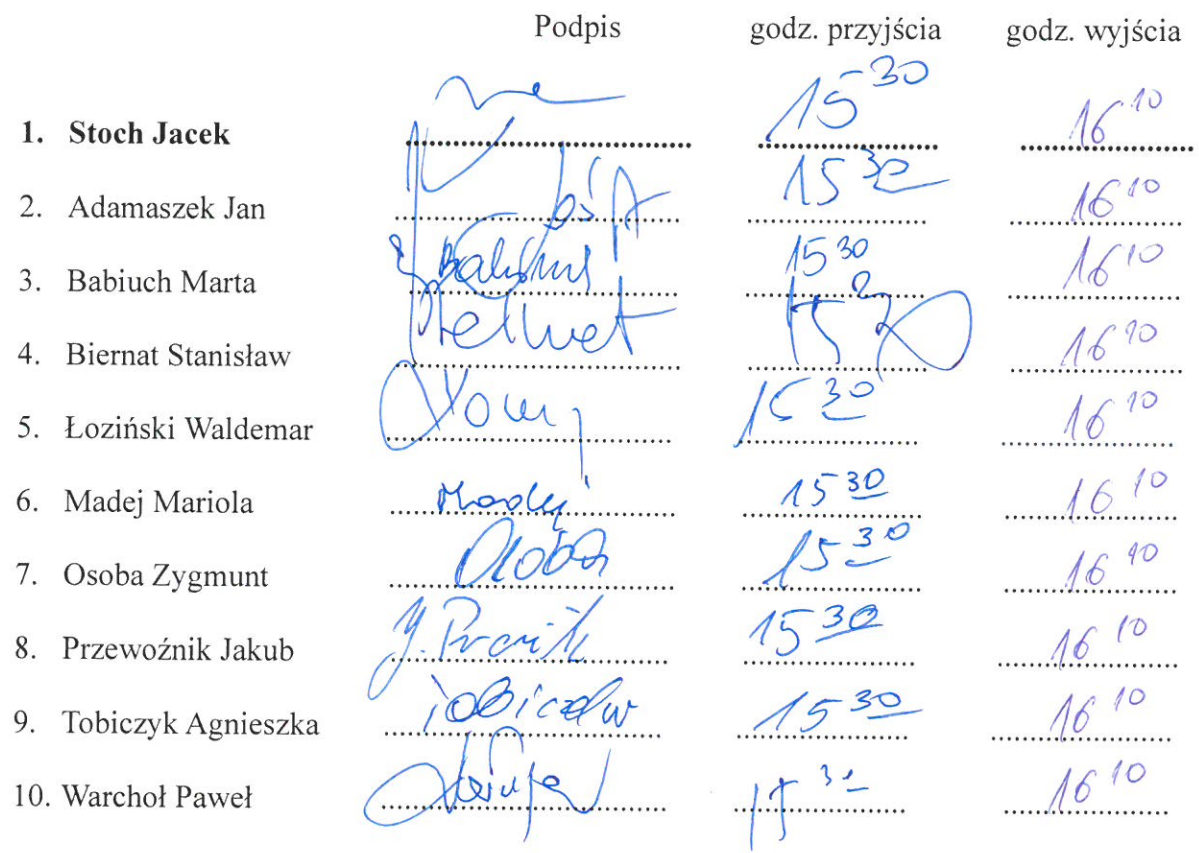 Podpis godz. przyjścia godz. wyjścia
1. Stoch Jacek 15 30 16 10
2. Adamaszek Jan 15 30 16 10
3. Babiuch Marta 15 30 16 10
4. Biernat Stanisław 15 30 16 10
5. Łoziński Waldemar 15 30 16 10
6. Madej Mariola Madej 15 30 16 10
7. Osoba Zygmunt Osoba 15 30 16 10
8. Przewoźnik Jakub 15 30 16 10
9. Tobiczyk Agnieszka 15 30 16 10
10. Warchoł Paweł 15 30 16 10